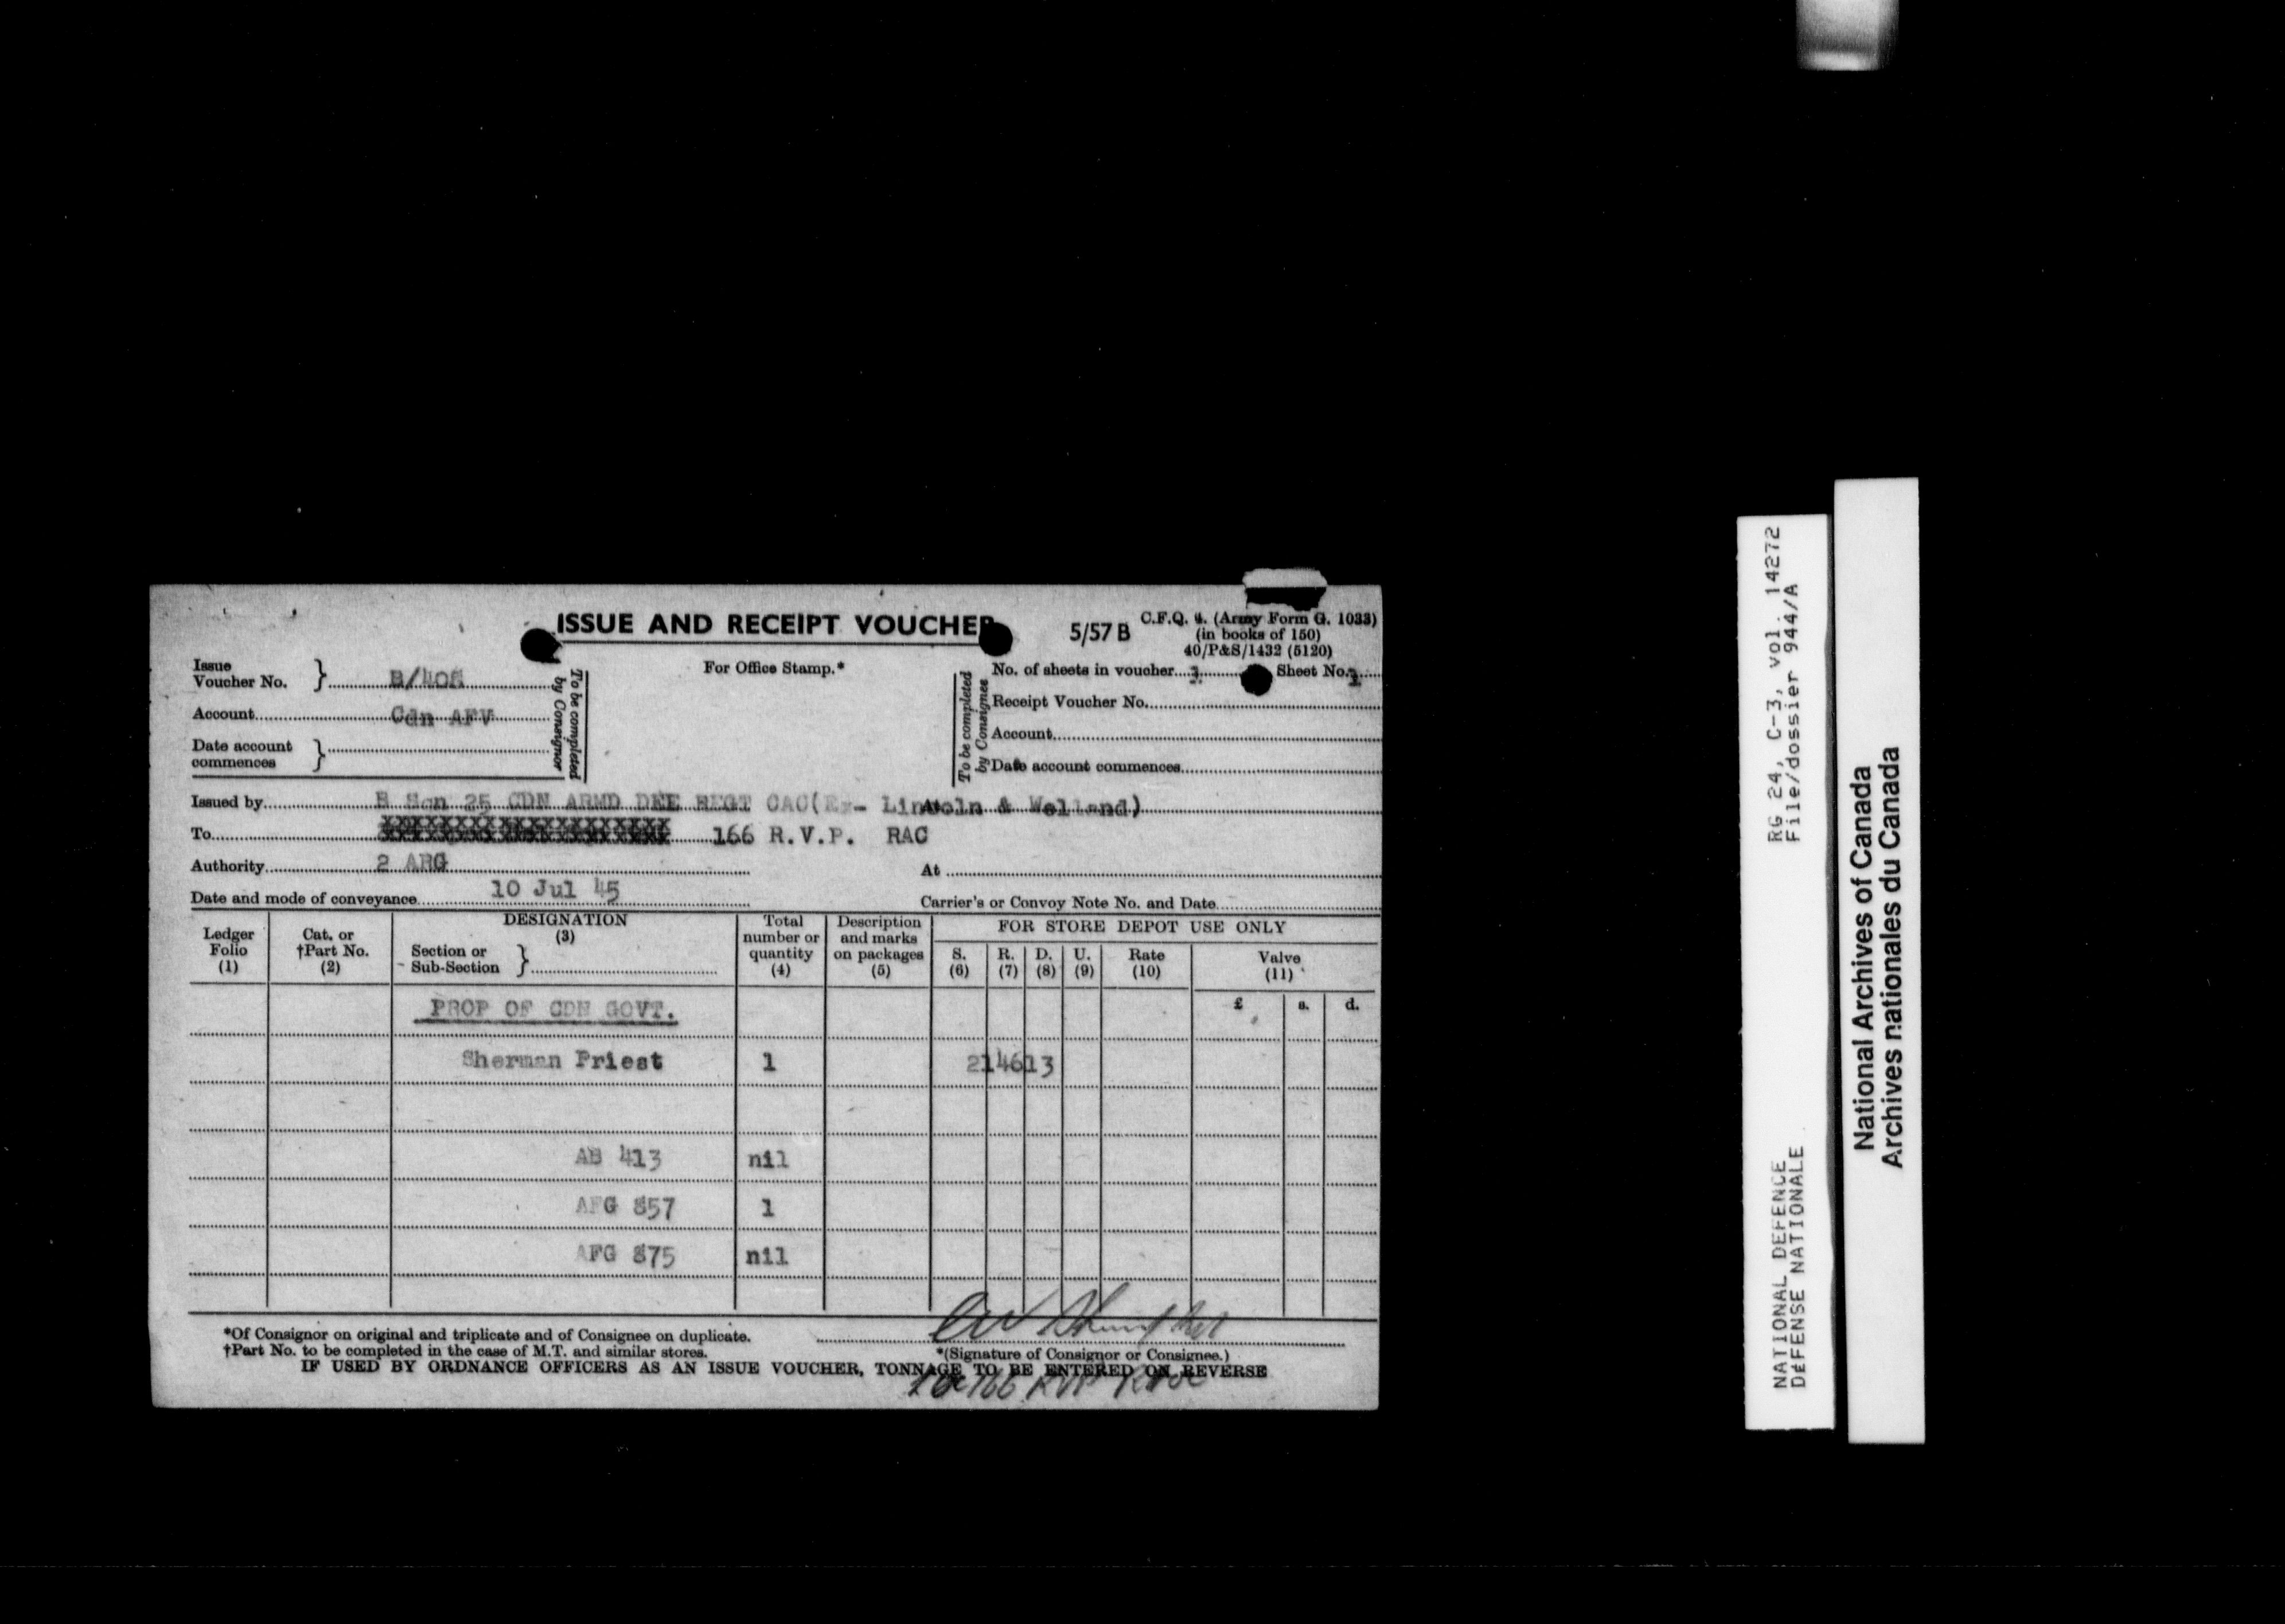 ISSUE AND RECEIPT VOUCHER
5/57 B
C.F.Q. 4. (Army Form G. 1033)
(in books of 150)
40/P&S/1432 (5120)
Issue
Voucher No. } B/408
Account Cdn AFV
Date account
commences }
To be completed
by Consignor
For Office Stamp.*
To be completed
by Consignee
No. of sheets in voucher 1 Sheet No. 1
Receipt Voucher No.
Account
Date account commences
Issued by B Sqn 25 CDN ARMD DEL REGT CAC(Ex- Lincoln & Welland) At
To XXXXXXXXXXXXXXXXXXXX 166 R.V.P. RAC
Authority 2 ARG At
Date and mode of conveyance 10 Jul 45 Carrier's or Convoy Note No. and Date
Ledger
Folio
(1)
Cat. or
†Part No.
(2)
DESIGNATION
(3)
Section or
Sub-Section }
Total
number or
quantity
(4)
Description
and marks
on packages
(5)
FOR STORE DEPOT USE ONLY
S.
(6)
R.
(7)
D.
(8)
U.
(9)
Rate
(10)
Valve
(11)
£ s. d.
PROP OF CDN GOVT.
Sherman Priest 1 214613
AB 413 nil
AFG 857 1
AFG 875 nil
*Of Consignor on original and triplicate and of Consignee on duplicate.
†Part No. to be completed in the case of M.T. and similar stores.
*(Signature of Consignor or Consignee.)
IF USED BY ORDNANCE OFFICERS AS AN ISSUE VOUCHER, TONNAGE TO BE ENTERED ON REVERSE
166 RVP
RG 24, C-3, vol. 14272
File/dossier 944/A
NATIONAL DEFENCE
DÉFENSE NATIONALE
National Archives of Canada
Archives nationales du Canada